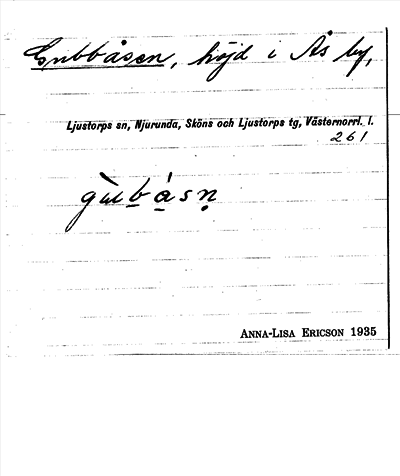 Gubbåsen, höjd i Ås by,
Ljustorps sn, Njurunda, Sköns och Ljustorps tg, Västernorrl. l.
261
ANNA-LISA ERICSON 1935